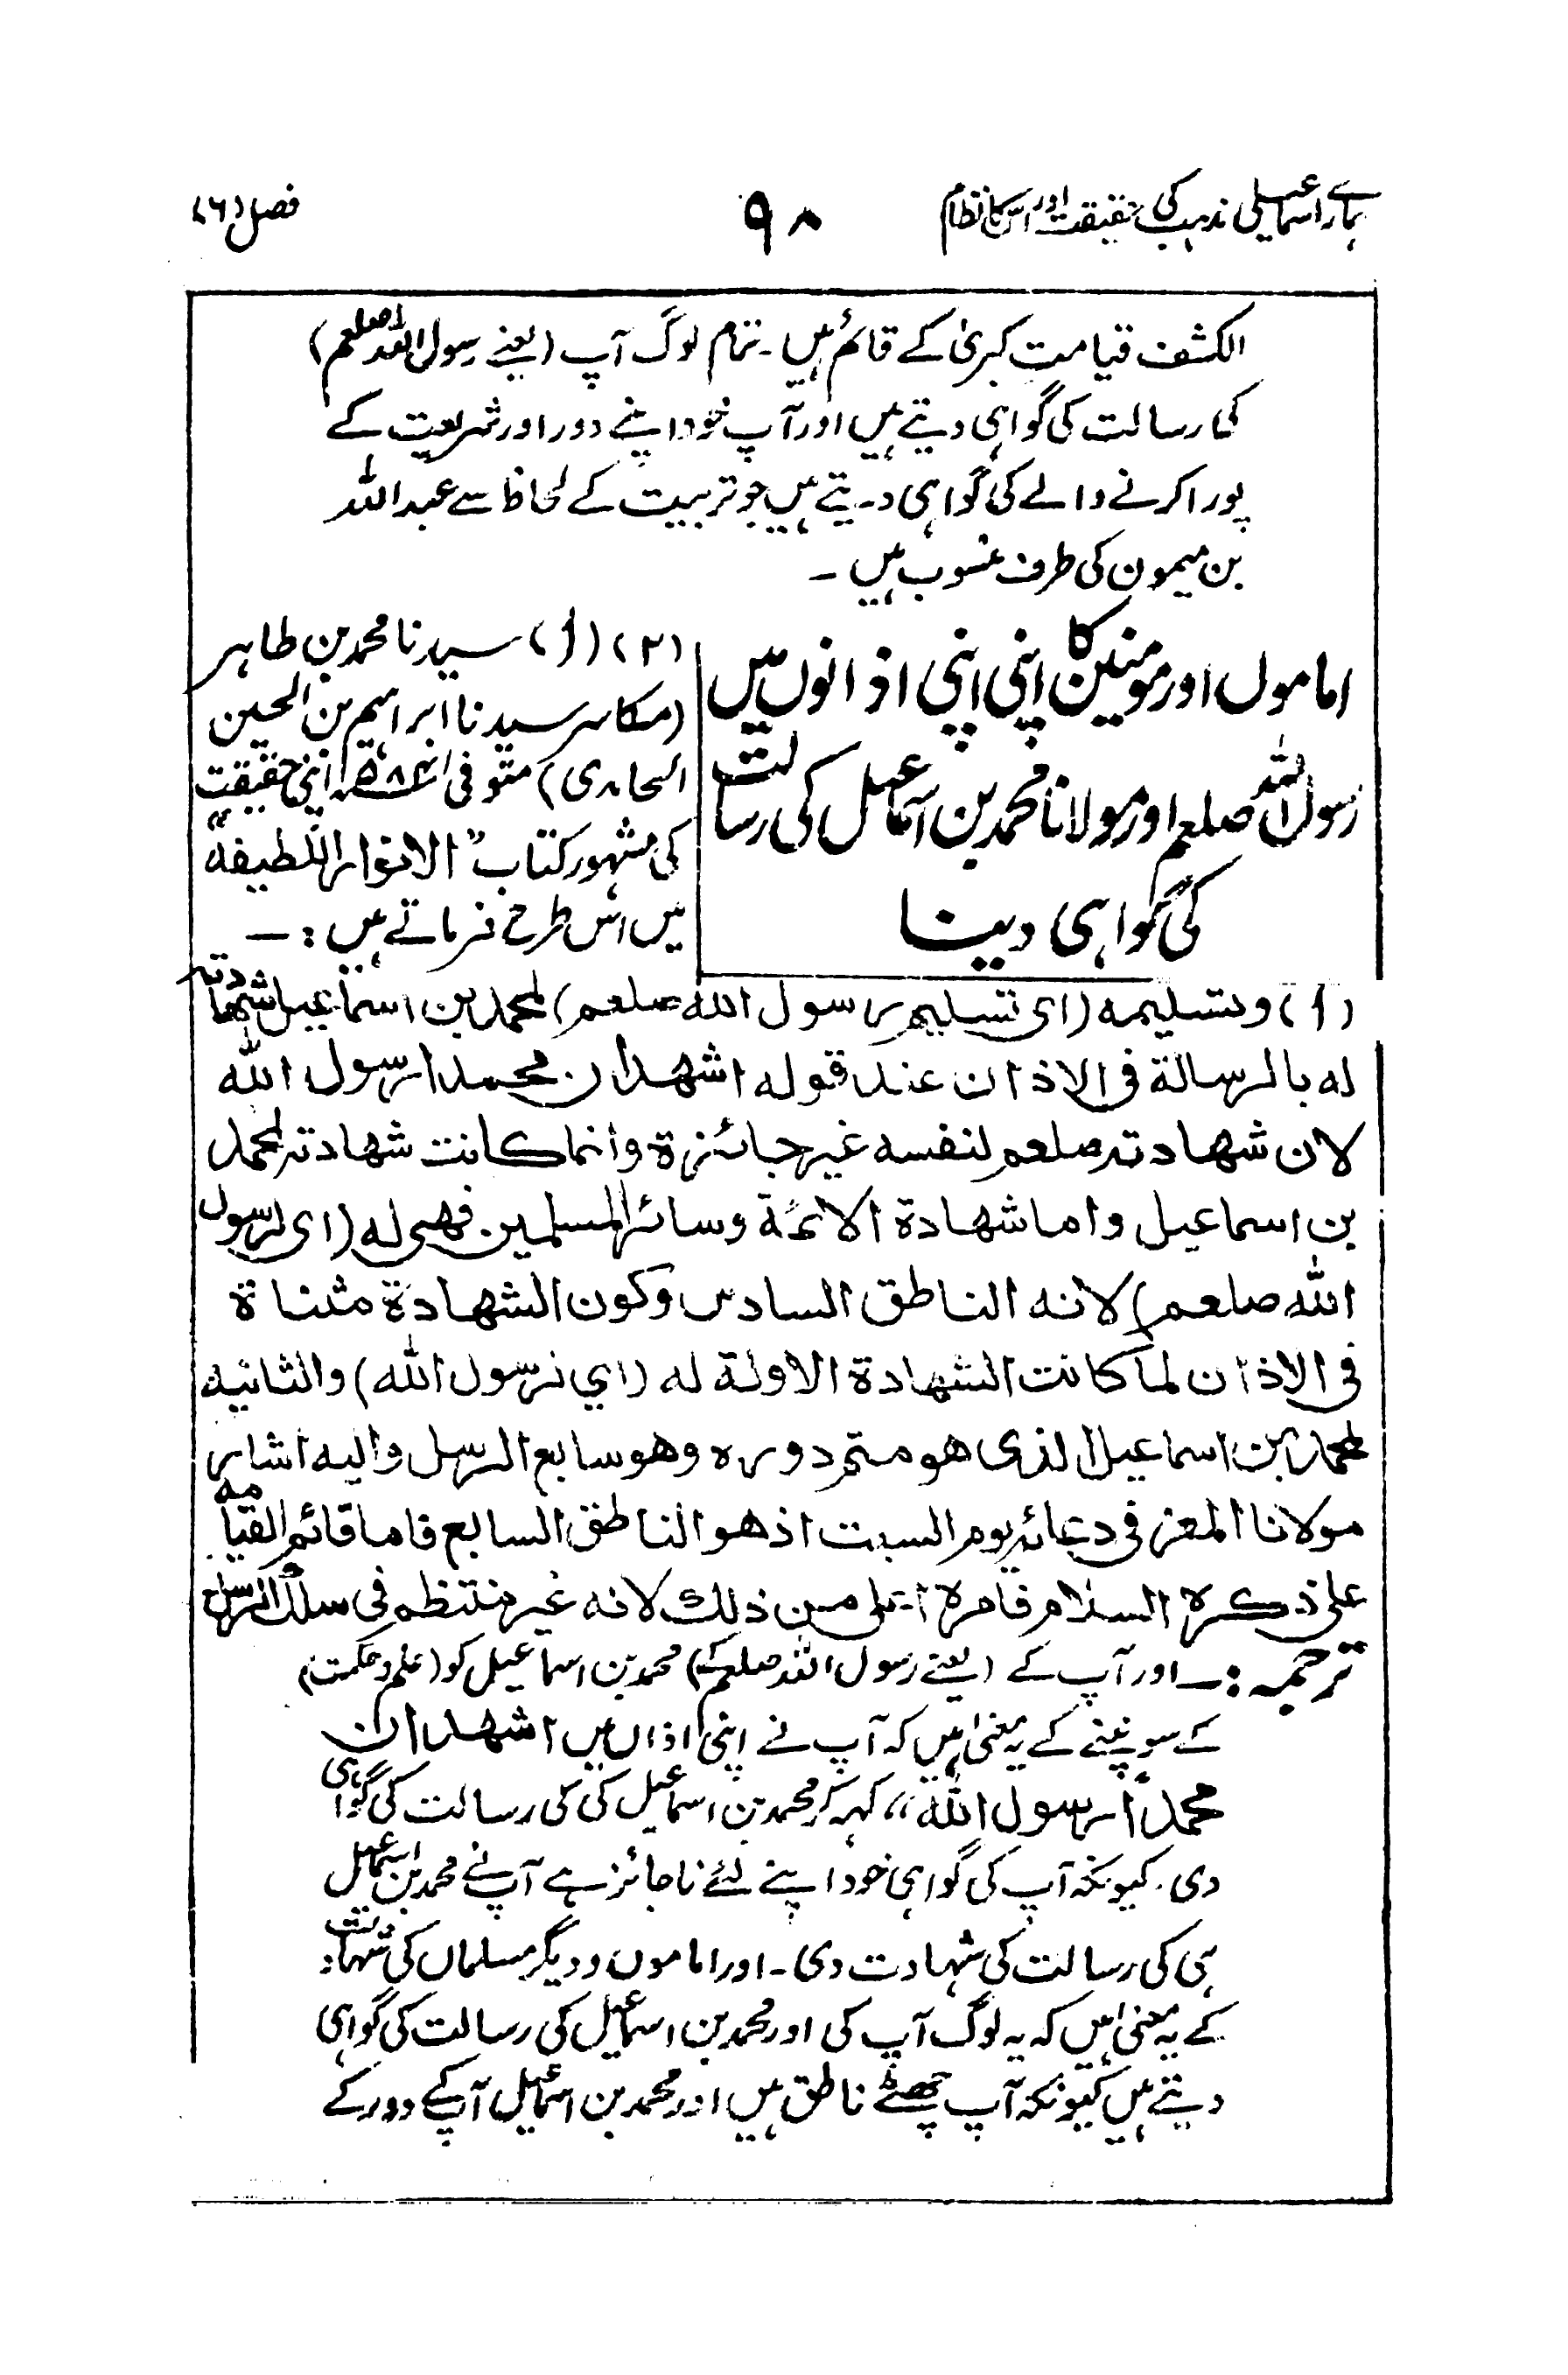 ہمارے اسماعیلی مذہب کی حقیقت اور اس کا نظام
۹۸
فصل (۶)
الکشف قیامت کبریٰ کے قائم ہیں۔ تمام لوگ آپ (یعنے رسول اللہ صلعم)
کی رسالت کی گواہی دیتے ہیں اور آپ خود اپنے دور اور شریعت کے
پورا کرنے والے کی گواہی دیتے ہیں جو تربیت کے لحاظ سے عبد اللہ
بن میمون کی طرف منسوب ہیں ۔
اماموں اور مومنین کا اپنی اپنی اذانوں میں
رسول اللہ صلعم اور مولانا محمد بن اسماعیل کی رسالت
کی گواہی دینا
(۲) (ا) سیدنا محمد بن طاہر
(مکاسر سیدنا ابراہیم بن الحسین
الحامدی) متوفی ۵۸۴ھ اپنی حقیقت
کی مشہور کتاب "الانوار اللطیفہ"
میں اس طرح فرماتے ہیں :—
(ا) وتسلیمه (ای تسلیم رسول الله صلعم) لمحمد بن اسماعیل شهادته
له بالرسالة فی الاذان عند قوله اشهد ان محمدا رسول الله
لان شهادته صلعم لنفسه غیر جائزة وانما کانت شهادته لمحمد
بن اسماعیل واما شهادة الائمة وسائر المسلمین فهی له (ای لرسول
الله صلعم) لانه الناطق السادس وکون الشهادة مثناة
فی الاذان لما کانت الشهادة الاولة له (ای لرسول الله) والثانیه
لمحمد بن اسماعیل الذی هو متم دوره وهو سابع الرسل والیه اشار
مولانا المعز فی دعائه یوم السبت اذ هو الناطق السابع فاما قائم القیامه
علی ذکره السلام فامره اعلی من ذلك لانه غیر منتظم فی سلك الرسل
ترجمہ :— اور آپ کے (یعنے رسول اللہ صلعم کے) محمد بن اسماعیل کو (علم و حکمت)
کے سونپنے کے یہ معنی ہیں کہ آپ نے اپنی اذاں میں اشهد ان
محمداً رسول الله،، کہہ کر محمد بن اسماعیل کی کی رسالت کی گواہی
دی۔ کیونکہ آپ کی گواہی خود اپنے لئے نا جائز ہے آپ نے محمد بن اسماعیل
ہی کی رسالت کی شہادت دی۔ اور اماموں و دیگر مسلماں کی شہادت
کے یہ معنی ہیں کہ یہ لوگ آپ کی اور محمد بن اسماعیل کی رسالت کی گواہی
دیتے ہیں کیونکہ آپ چھٹے ناطق ہیں اور محمد بن اسماعیل آپ کے دور کے